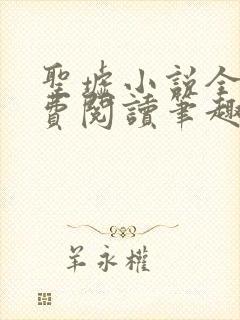 聖墟小說全
費閱讀筆趣
羊永權